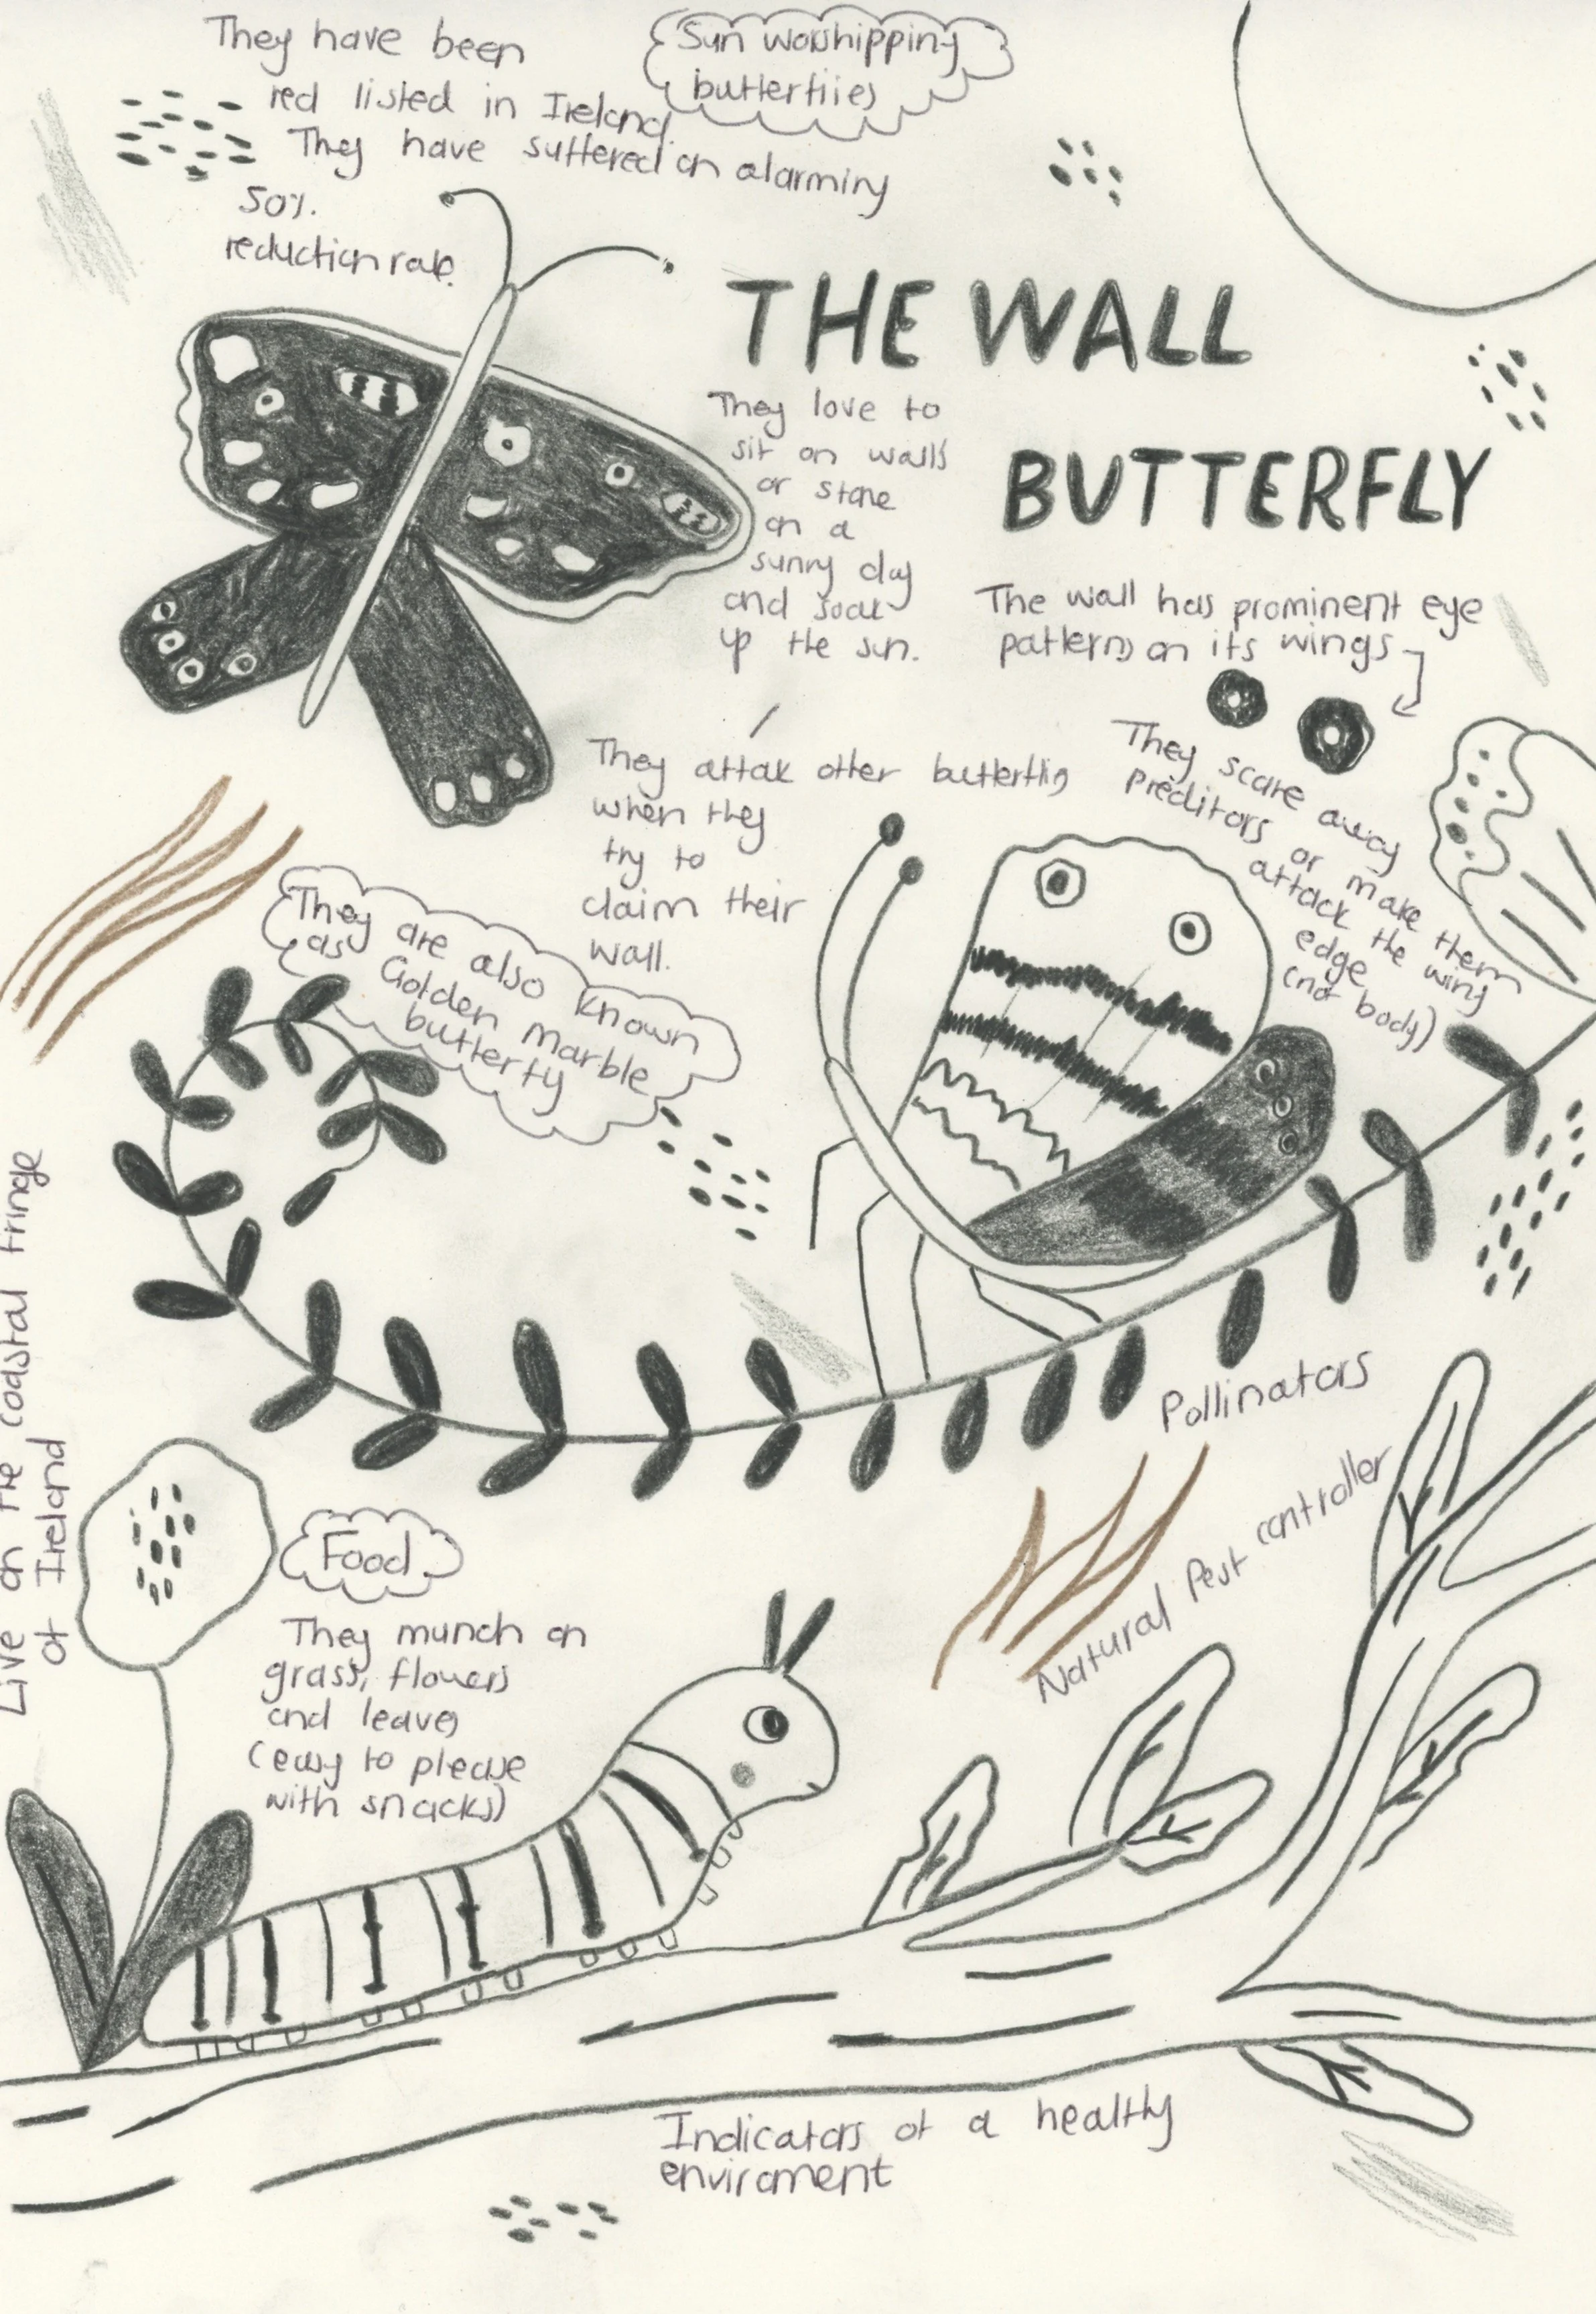 They have been
red listed in Ireland.
They have suffered an alarming
50%
reduction rate.
Sun worshipping
butterflies
THE WALL
BUTTERFLY
They love to
sit on walls
or stone
on a
sunny day
and soak
up the sun.
The wall has prominent eye
patterns on its wings
They scare away
preditors or make them
attack the wing
edge
(not body)
They attak other butterflies
when they
try to
claim their
wall.
They are also known
as Golden marble
butterfly
Live on the coastal fringe
of Ireland
Pollinators
Natural Pest controller
Food
They munch on
grass, flowers
and leaves
(easy to please
with snacks)
Indicators of a healthy
enviroment